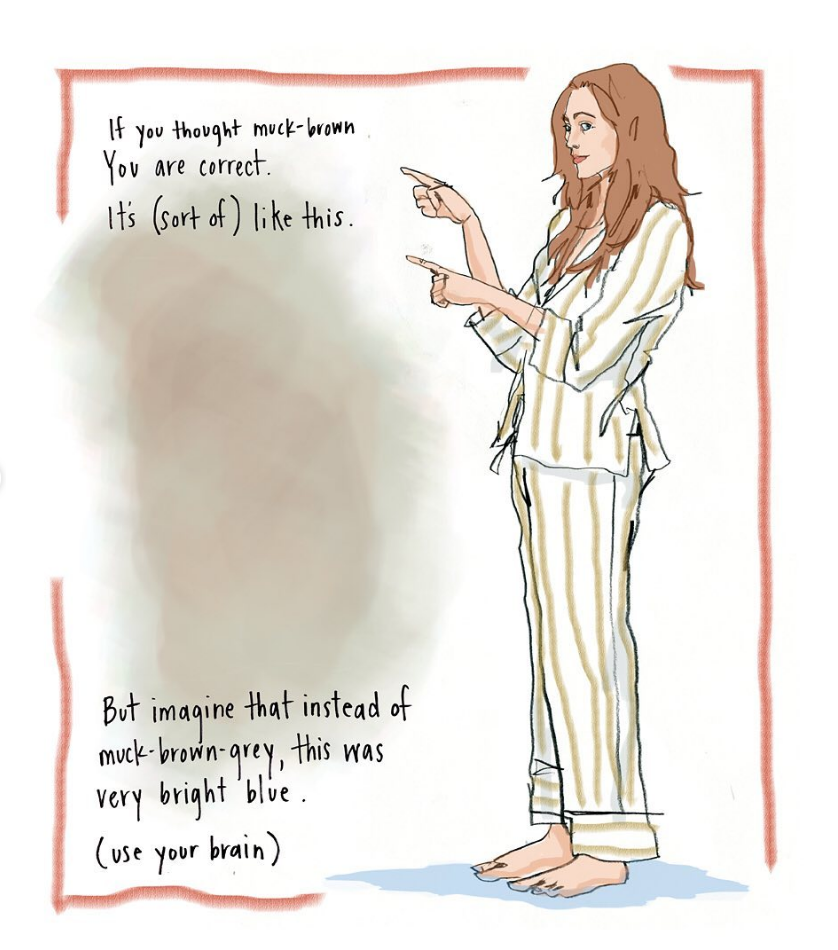 If you thought muck-brown
You are correct.
It's (sort of) like this.
But imagine that instead of
muck-brown-grey, this was
very bright blue.
(use your brain)